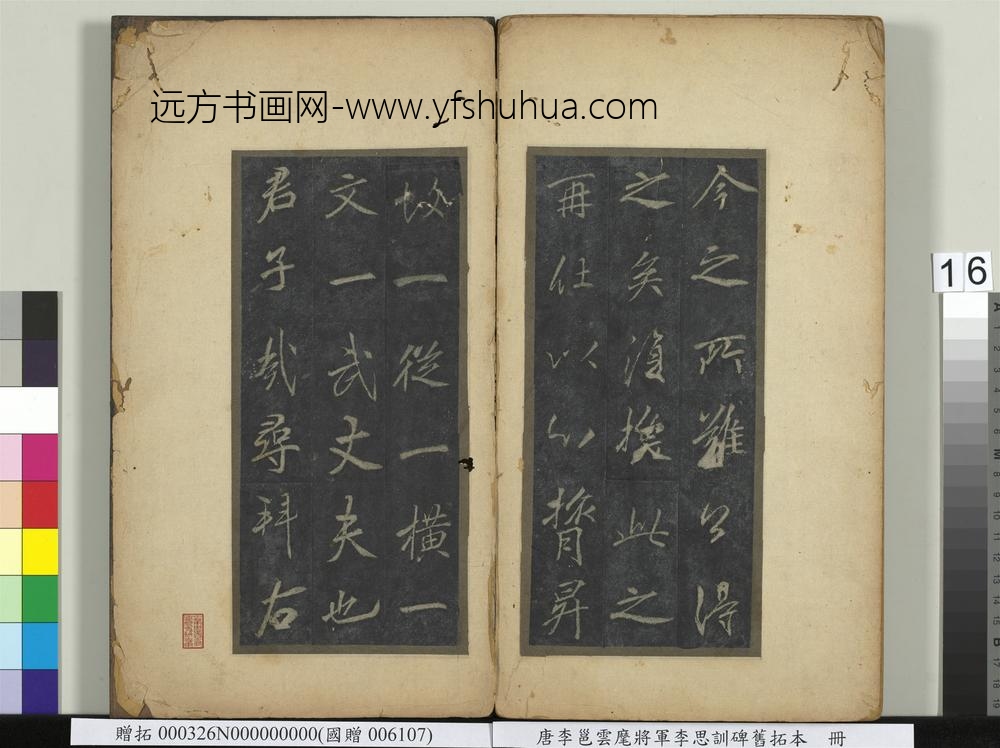 远方书画网-www.yfshuhua.com
今之所難公得
之矣換此之
再仕以心膂昇
故一從一橫一
文一武丈夫也
君子哉尋拜右
16
贈拓 000326N000000000(國贈 006107)
唐李邕雲麾將軍李思訓碑舊拓本 冊